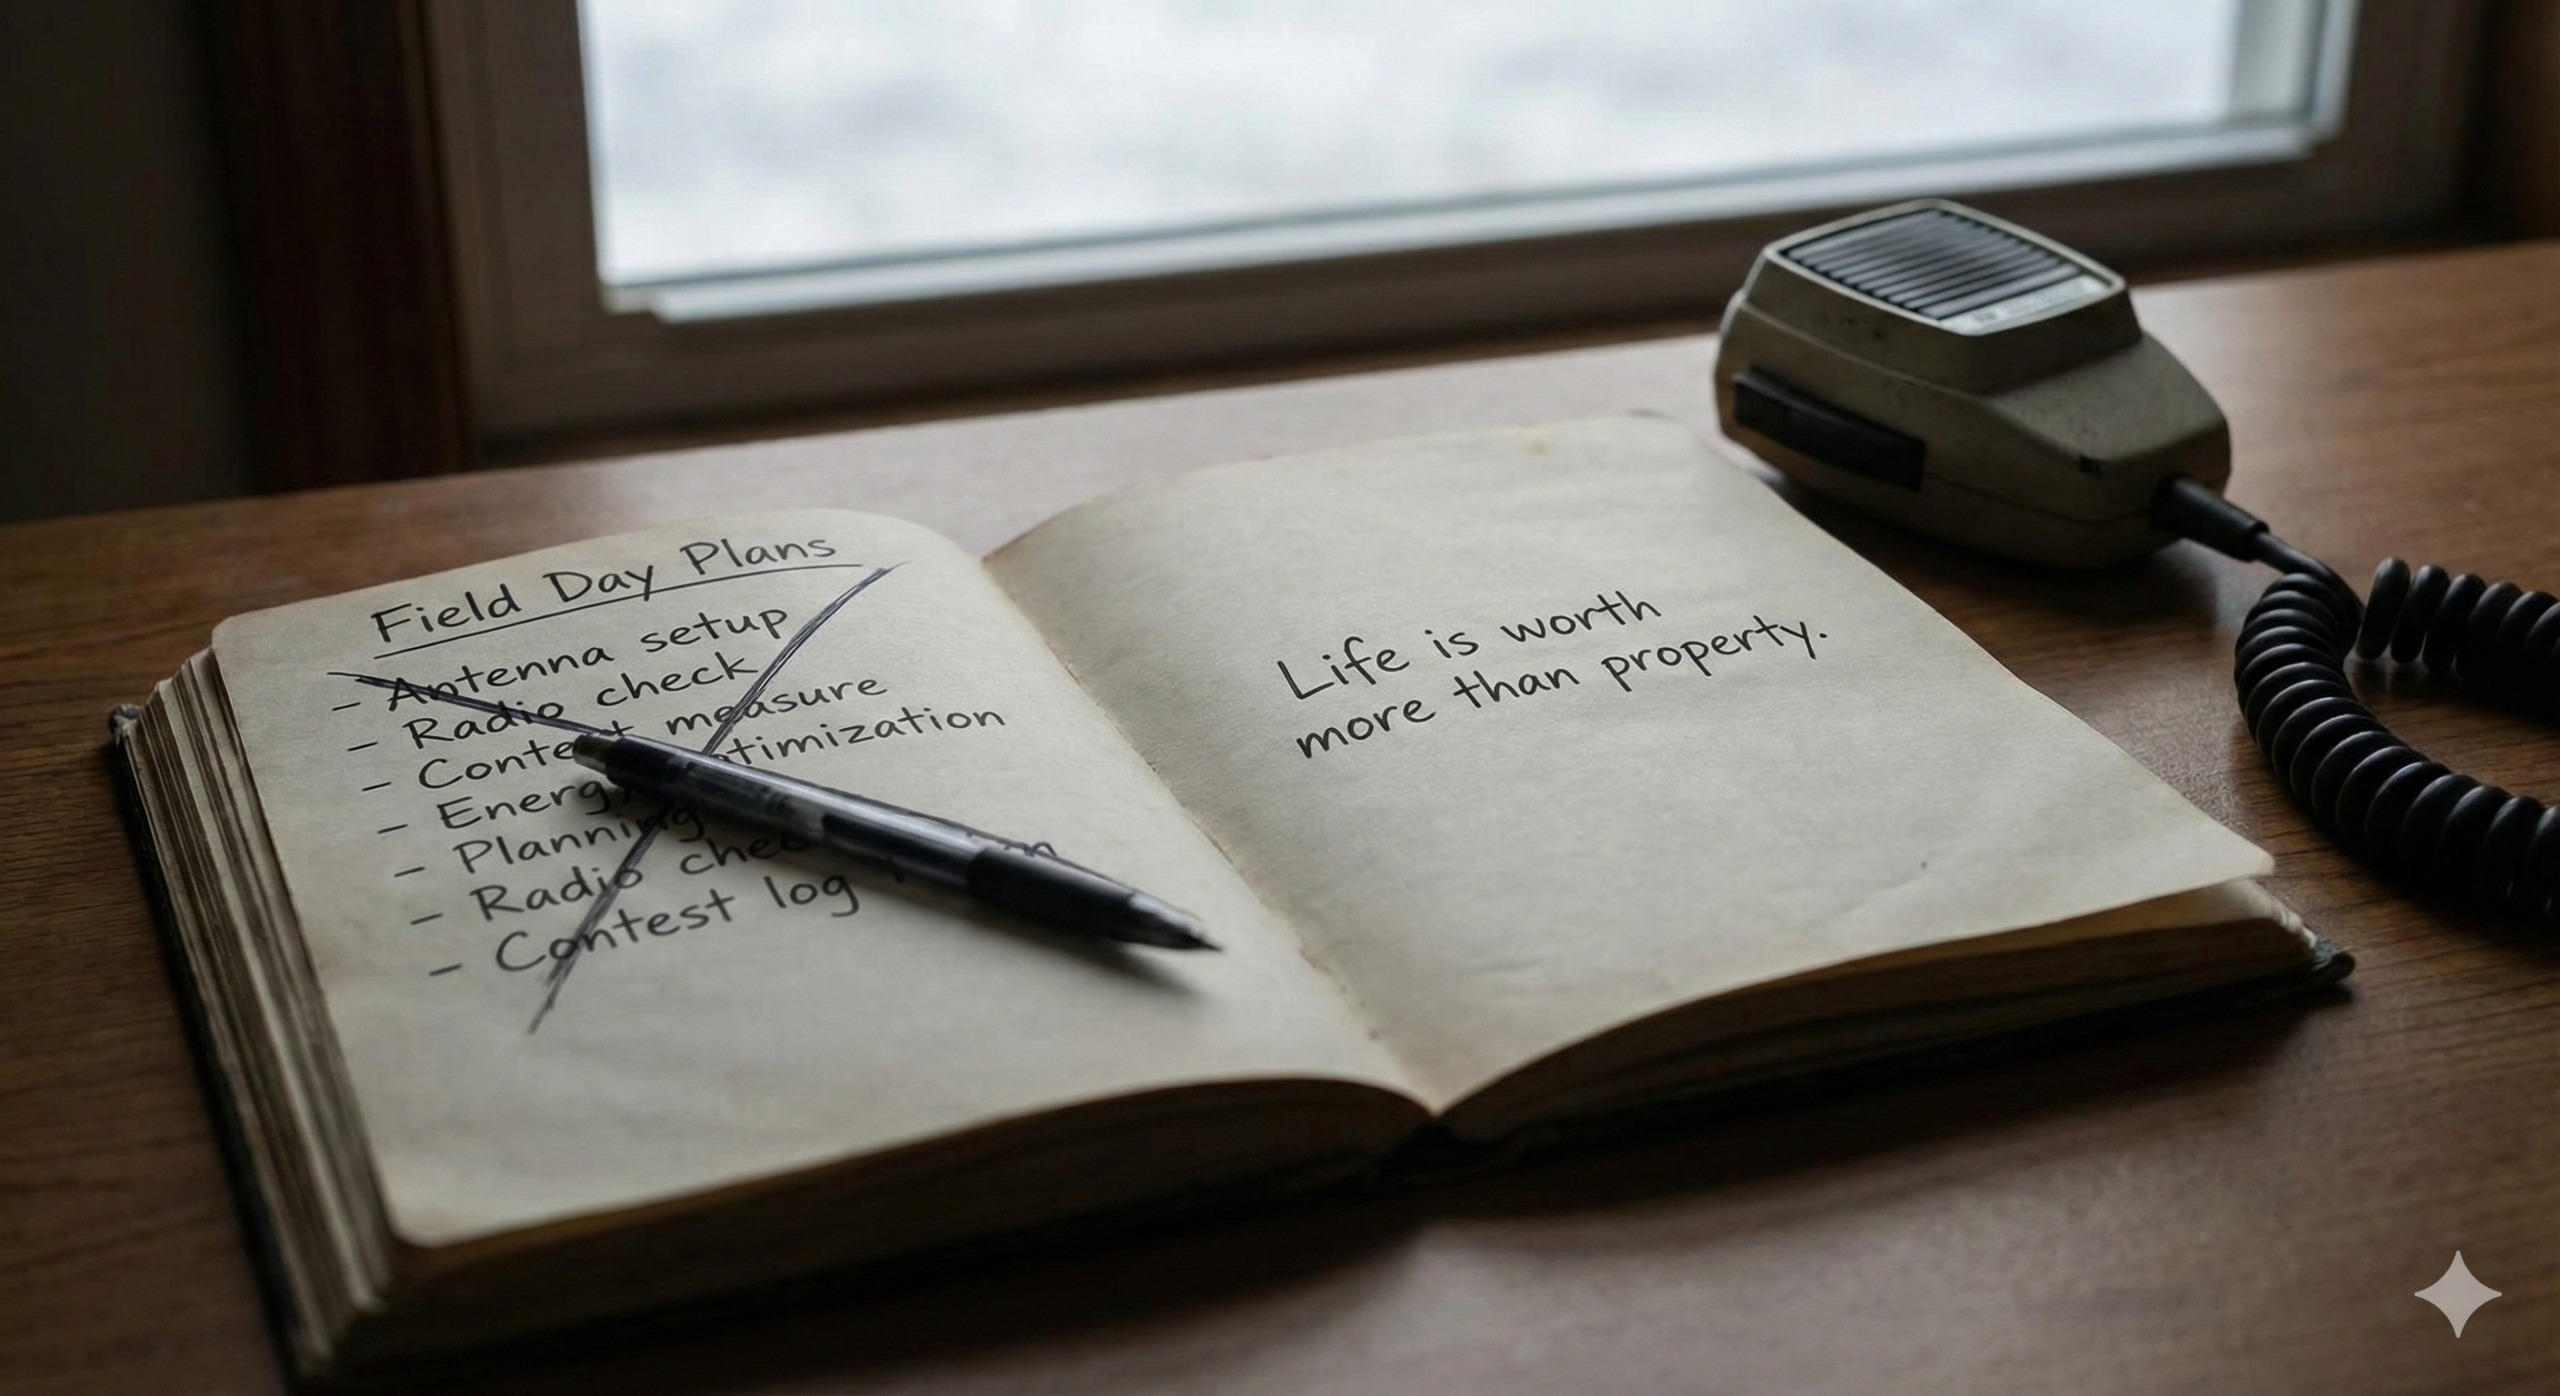 Field Day Plans
- Antenna setup
- Radio check
- Contest measure
- Energy
- Planning
- Radio check
- Contest log
Life is worth
more than property.